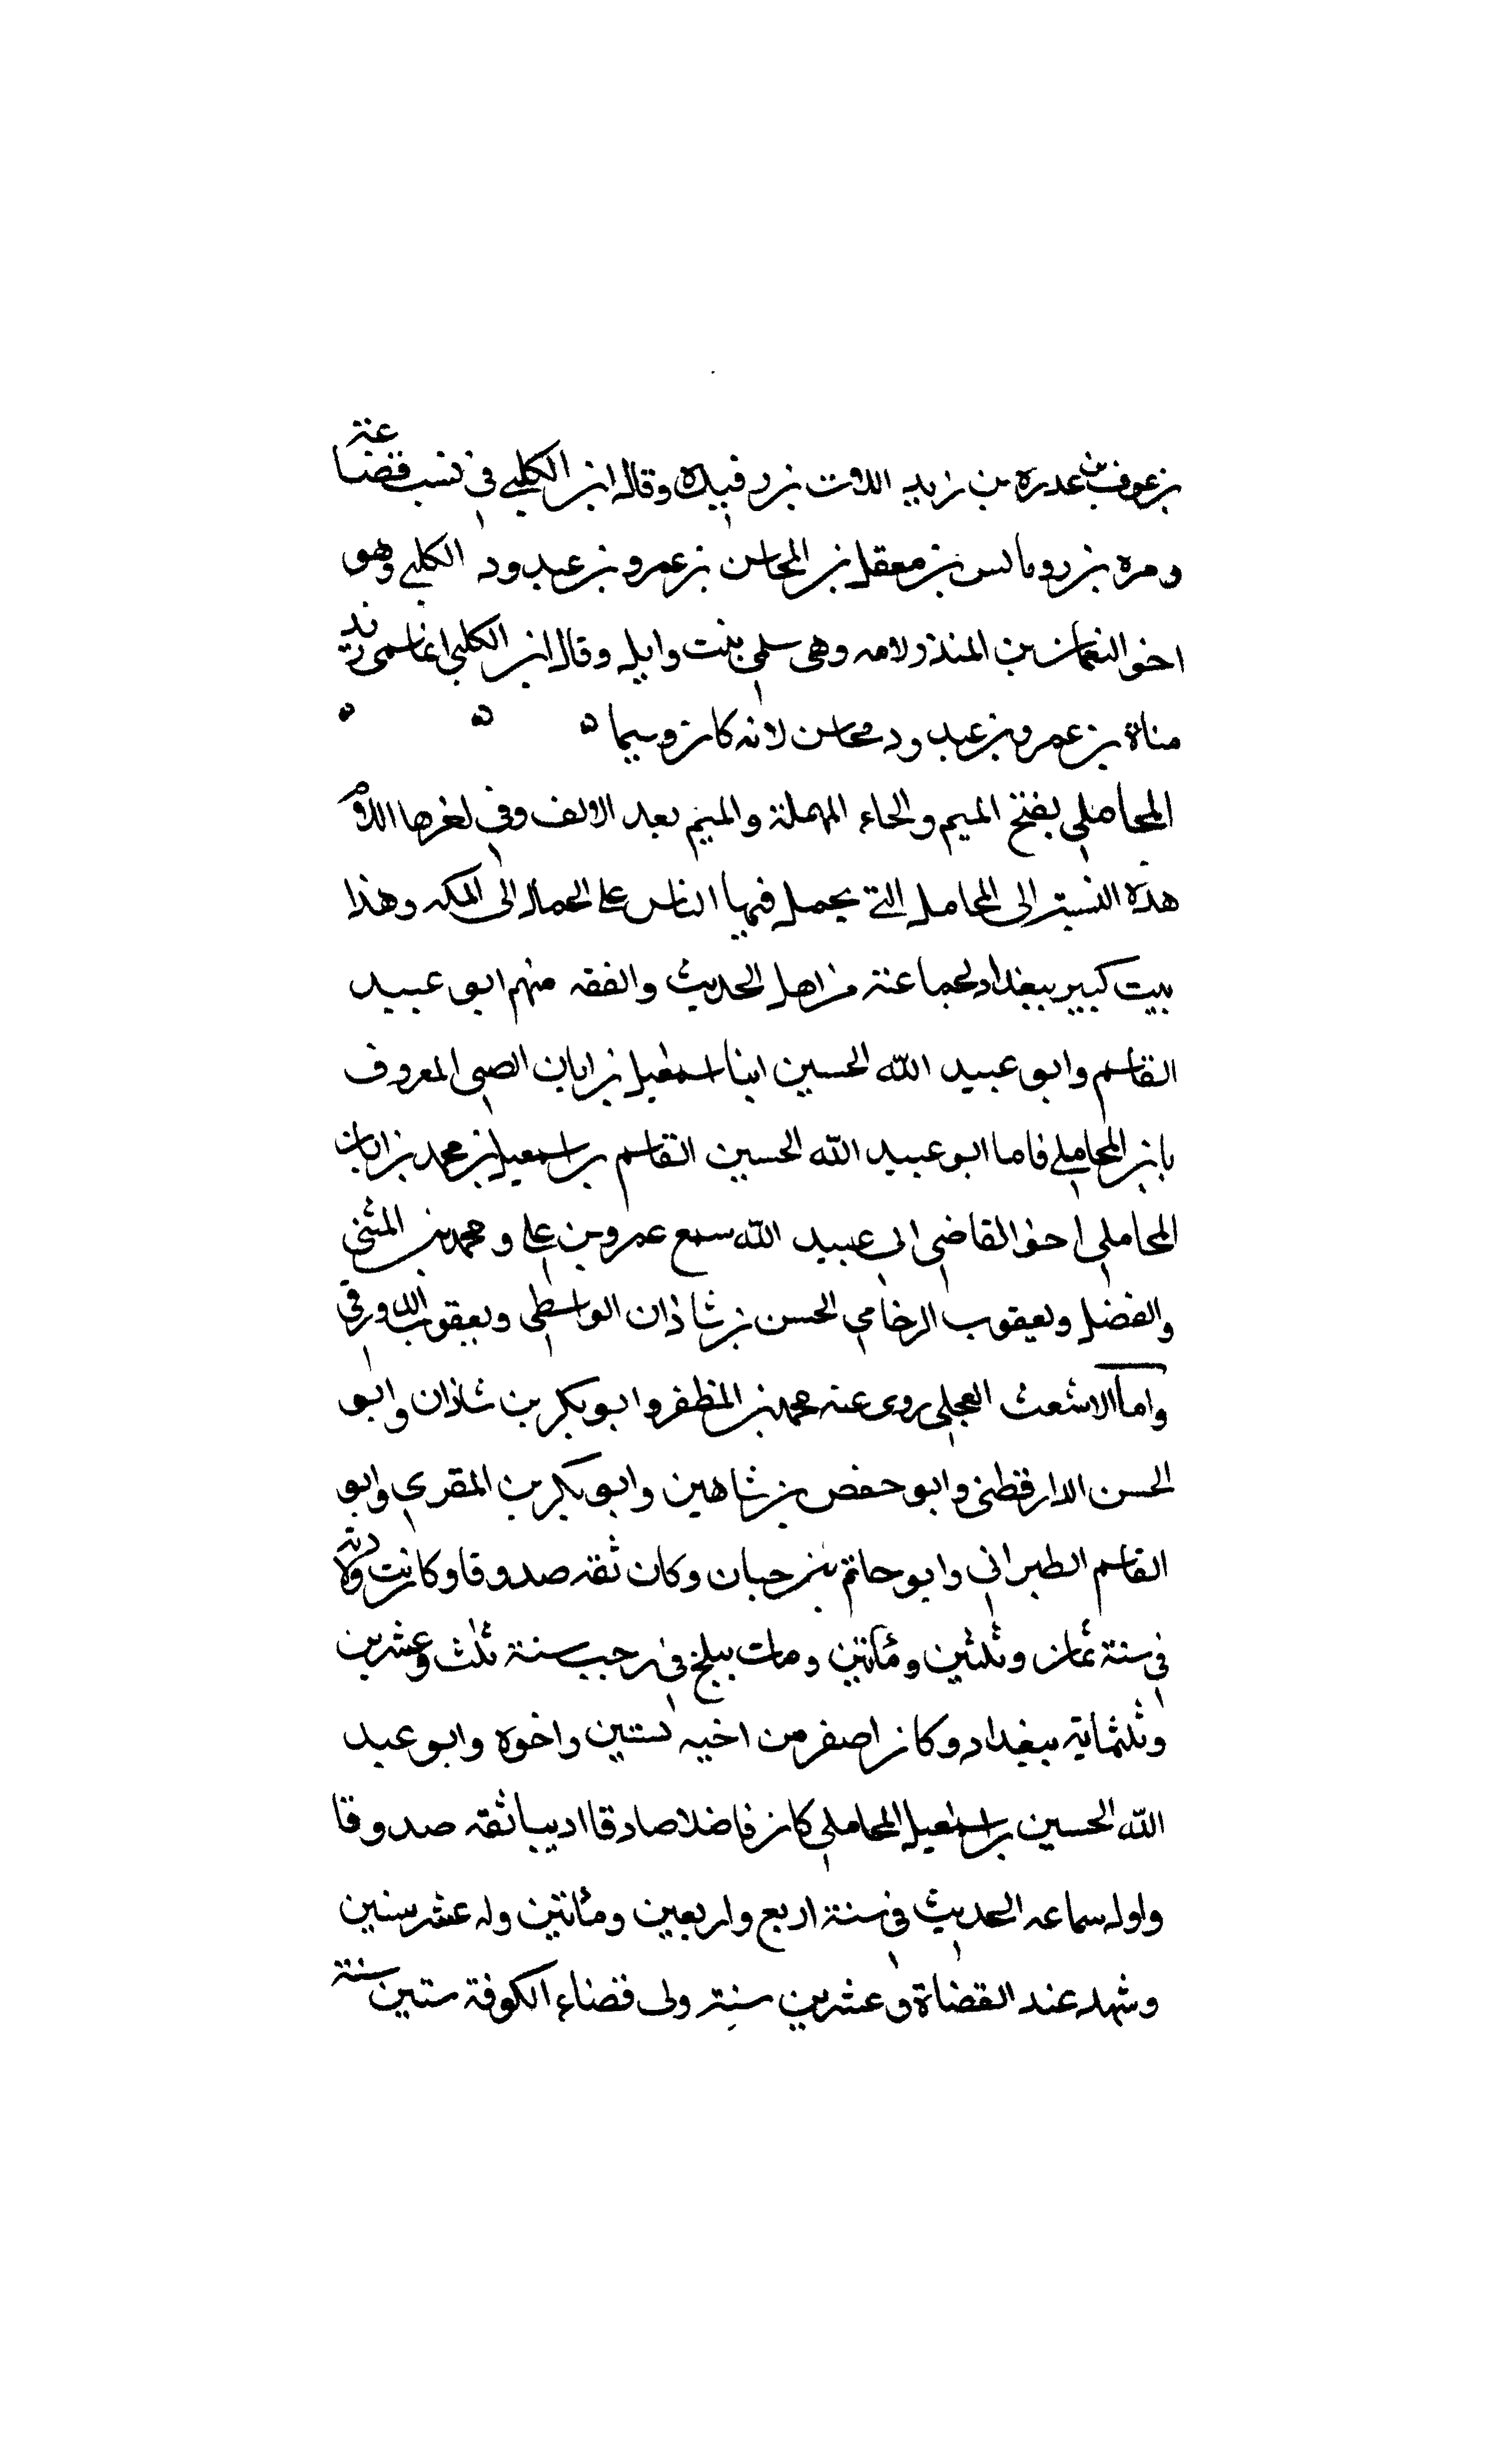 بن عوف بن عدره بن زيد اللات بن رفيده وقال ابن الكلبي في نسب قضاعة
ومره بن رومانس بن معقل بن المحاسن بن عمرو بن عبد ود الكلبي وهو
اخو النعمان بن المنذر لامه وهى سلمى بنت وايل وقال ابن الكلبي انما سمى زيد
مناة بن عمرو بن عبد ود محاسن لانه كان وسيما
المحاملي بفتح الميم والحاء المهملة والميم بعد الالف وفي اخرها اللام
هذه النسبة الى المحامل التي يحمل فيها الناس على الجمال الى المكه وهذا
بيت كبير ببغداد لجماعة من اهل الحديث والفقه منهم ابو عبيد
القاسم وابو عبيد الله الحسين ابنا اسمعيل بن ابان الضبي المعروف
بابن المحاملي فاما ابو عبيد الله الحسين القاسم بن اسمعيل بن محمد بن ابان
المحاملي اخو القاضي ابي عبيد الله سمع عمرو بن علي ومحمد بن المثنى
والفضل ويعقوب الرخامي الحسن بن شاذان الواسطي ويعقوب الدورقي
واما الاشعث العجلي روى عنه محمد بن المظفر وابو بكر بن شاذان وابو
الحسن الدارقطني وابو حفص بن شاهين وابو بكر بن المقري وابو
القاسم الطبراني وابو حاتم بن حبان وكان ثقه صدوقا وكانت ولادته
في سنة ثمان وثلثين ومأتين ومات ببلخ في رجب سنة ثلث وعشرين
وثلثماية ببغداد وكان اصغر من اخيه لسنتين واخوه وابو عبد
الله الحسين بن اسمعيل المحاملي كان فاضلا صادقا اديبا ثقه صدوقا
واول سماعه الحديث في سنة اربع واربعين ومأتين وله عشر سنين
وشهد عند القضاة و عشرين سنة ولى قضاء الكوفة ستين سنة